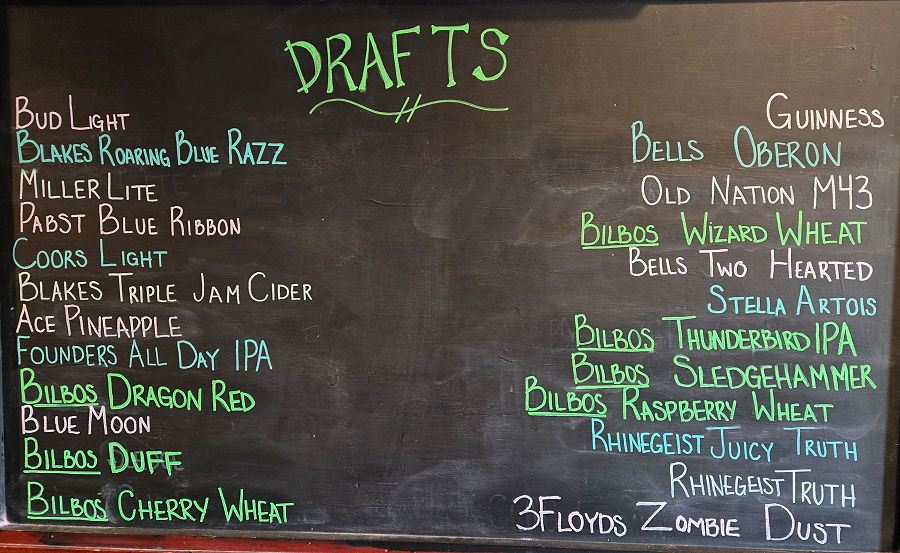 DRAFTS
BUD LIGHT
BLAKES ROARING BLUE RAZZ
MILLER LITE
PABST BLUE RIBBON
COORS LIGHT
BLAKES TRIPLE JAM CIDER
ACE PINEAPPLE
FOUNDERS ALL DAY IPA
BILBOS DRAGON RED
BLUE MOON
BILBOS DUFF
BILBOS CHERRY WHEAT
GUINNESS
BELLS OBERON
OLD NATION M43
BILBOS WIZARD WHEAT
BELLS TWO HEARTED
STELLA ARTOIS
BILBOS THUNDERBIRD IPA
BILBOS SLEDGEHAMMER
BILBOS RASPBERRY WHEAT
RHINEGEIST JUICY TRUTH
RHINEGEIST TRUTH
3FLOYDS ZOMBIE DUST